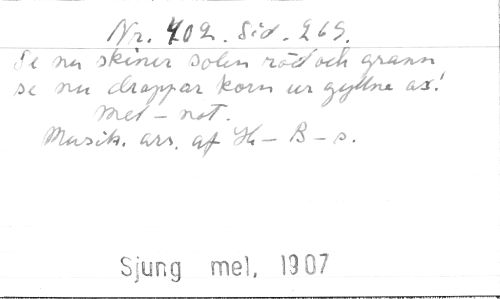 Nr. 402. Sid. 269.
Se nu skiner solen röd och grann
se nu droppar korn ur gyllne ax!
Mel - not.
Musik. arr. af H - B - s.
Sjung mel, 1907